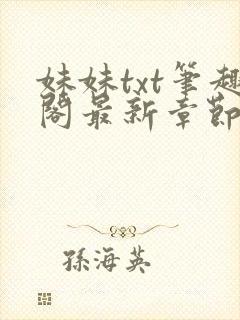 妹妹txt筆趣
閣最新章節
孫海英